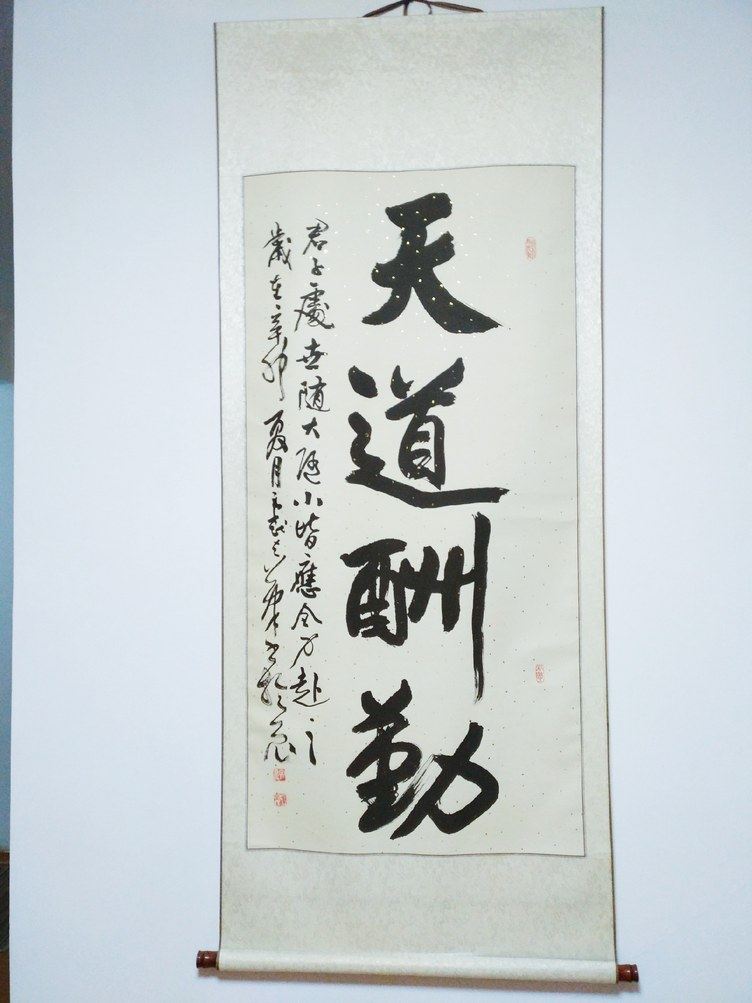 天道酬勤
君子處世隨大遇小皆應全力赴之
歲在辛卯夏月